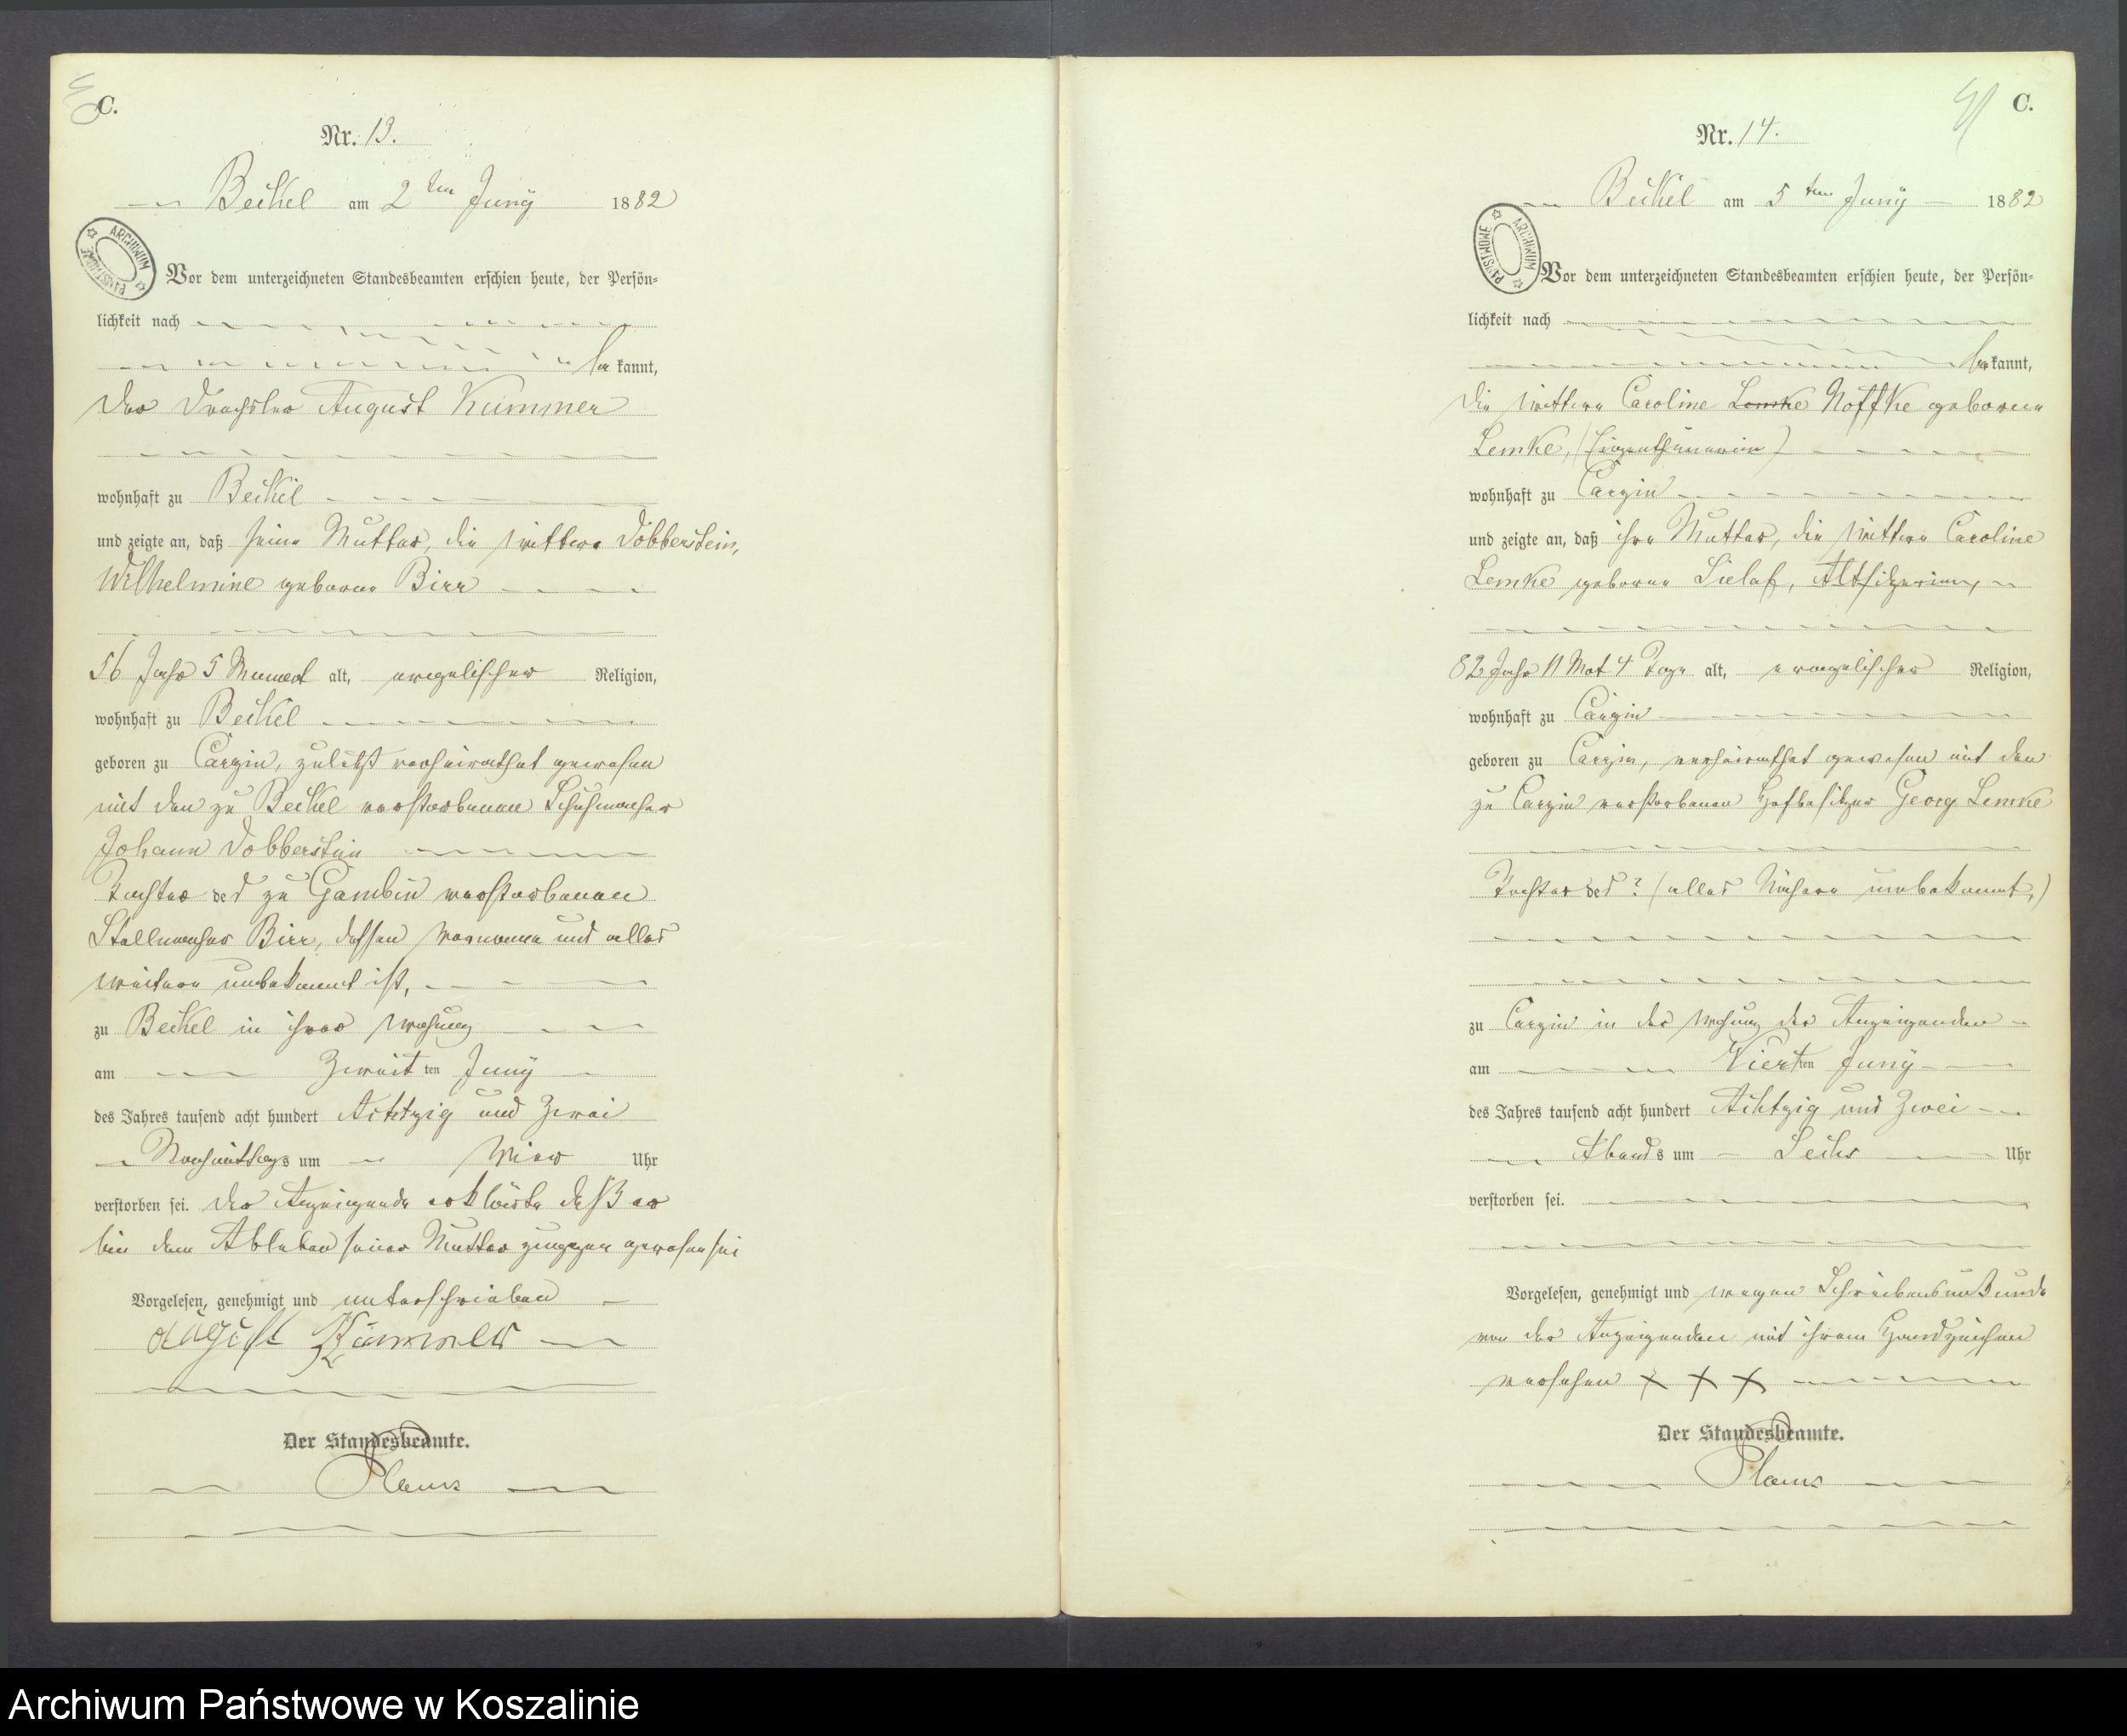 C.
Nr. 13.
Beckel am 2ten Juny 1882
ARCHIWUM PAŃSTWOWE
Vor dem unterzeichneten Standesbeamten erschien heute, der Persön-
lichkeit nach
be kannt,
der Drechsler August Kummer
wohnhaft zu Beckel
und zeigte an, daß seine Mutter, die Wittwe Dobberstein,
Wilhelmine geborne Birr
56 Jahr 5 Monat alt, evangelischer Religion,
wohnhaft zu Beckel
geboren zu Cargin, zuletzt verheirathet gewesen
mit den zu Beckel verstorbenen Schuhmacher
Johann Dobberstein
Tochter des zu Gambin verstorbenen
Stellmacher Birr, dessen Vorname und alles
weitere unbekannt ist,
zu Beckel in ihrer Wohnung
am Zweit ten Juny
des Jahres tausend acht hundert Achtzig und Zwei
Nachmittags um Uhr
verstorben sei. Der Anzeigende erklärte daß er
bei dem Ableben seiner Mutter zugegen gewesen sei
Vorgelesen, genehmigt und unterschrieben
August Kümmer
Der Standesbeamte.
C.
Nr. 14.
Beckel am 5ten Juny 1882
ARCHIWUM PAŃSTWOWE
Vor dem unterzeichneten Standesbeamten erschien heute, der Persön-
lichkeit nach
be kannt,
die Wittwe Caroline Lemke Noffke geborne
Lemke, (Eigenthümerin)
wohnhaft zu Cargin
und zeigte an, daß ihre Mutter, die Wittwe Caroline
Lemke geborne Sielaf, Altsitzerin,
82 Jahr 11 Mot 4 Tage alt, evangelischer Religion,
wohnhaft zu Cargin
geboren zu Cargin, verheirathet gewesen mit den
zu Cargin verstorbenen Hofbesitzer Georg Lemke
Tochter des ? (alles Nähere unbekannt,)
zu Cargin in der Wohnung der Anzeigenden
am Vier ten Juny
des Jahres tausend acht hundert Achtzig und Zwei
Abends um Sechs Uhr
verstorben sei.
Vorgelesen, genehmigt und wegen Schreibensunkunde
von der Anzeigenden mit ihrem Handzeichen
versehen X X X
Der Standesbeamte.
Archiwum Państwowe w Koszalinie